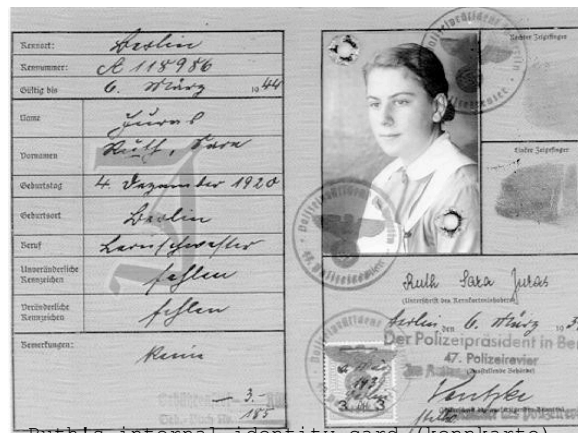 Kennort: Berlin
Kennummer: A 118986
Gültig bis 6. März 1944
Name Juras
Vornamen Ruth, Sara
Geburtstag 4. Dezember 1920
Geburtsort Berlin
Beruf Lernschwester
Unveränderliche Kennzeichen fehlen
Veränderliche Kennzeichen fehlen
Bemerkungen: keine
J
3.-
185
Rechter Zeigefinger
Linker Zeigefinger
Ruth Sara Juras
(Unterschrift des Kennkarteninhabers)
Berlin, den 6. März 193
Der Polizeipräsident in Be
47. Polizeirevier
(Ausstellende Behörde)
Ruth's internal identity card (kennkarte)